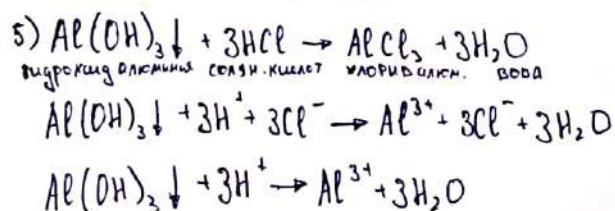 5) Al(OH)₃↓ + 3HCl → AlCl₃ + 3H₂O
гидроксид алюминия солян. кислот хлорид алюм. вода
Al(OH)₃↓ + 3H⁺ + 3Cl⁻ → Al³⁺ + 3Cl⁻ + 3H₂O
Al(OH)₃↓ + 3H⁺ → Al³⁺ + 3H₂O